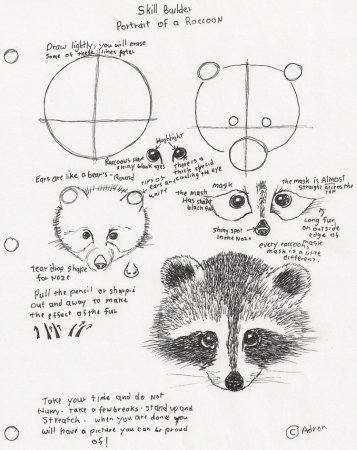 Skill Builder
Portrait of a Raccoon
Draw lightly, you will erase
some of these lines later
Highlight
Raccoons have
shiny black eyes
there is a
thick eyelid
circling the eye
Ears are like a bear's - Round
Tips of
ears are
white
mask
the mask
Has short
black fur
the mask is ALMOST
straight across the
top
shiny spot
in the Noze
Long fur
on outside
edge of
mask
every raccoon
mask is a little
different.
tear drop shape
for Noze
Pull the pencil or sharpie
out and away to make
the effect of the fur
Take your time and do Not
Hurry. Take a few breaks - stand up and
Streatch. when you are done you
will have a picture you can be proud
of!
© Adron